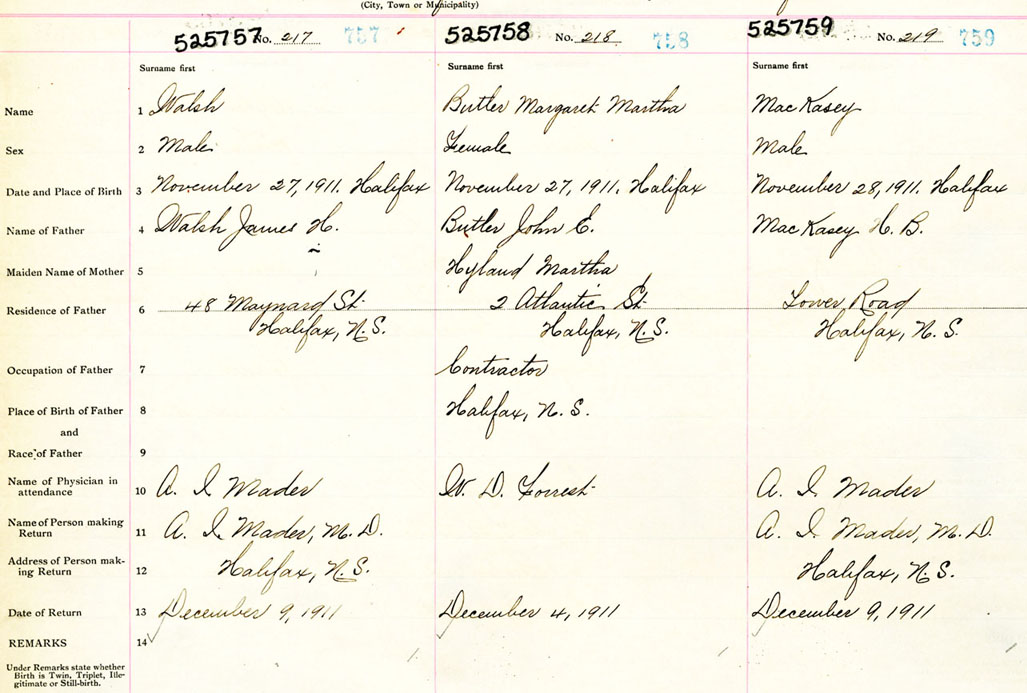 (City, Town or Municipality)
525757 No. 217 757 525758 No. 218 758 525759 No. 219 759
Surname first Surname first Surname first
Name 1 Walsh Butler Margaret Martha MacKasey
Sex 2 Male Female Male
Date and Place of Birth 3 November 27, 1911. Halifax November 27, 1911. Halifax November 28, 1911. Halifax
Name of Father 4 Walsh James H. Butler John E. MacKasey H. B.
Maiden Name of Mother 5 Hyland Martha
Residence of Father 6 48 Maynard St. 2 Atlantic St. Tower Road
Halifax, N.S. Halifax, N.S. Halifax, N.S.
Occupation of Father 7 Contractor
Place of Birth of Father 8 Halifax, N.S.
and
Race of Father 9
Name of Physician in
attendance 10 A. I. Mader W. D. Forrest A. I. Mader
Name of Person making
Return 11 A. I. Mader, M.D. A. I. Mader, M.D.
Address of Person mak-
ing Return 12 Halifax, N.S. Halifax, N.S.
Date of Return 13 December 9, 1911 December 4, 1911 December 9, 1911
REMARKS 14
Under Remarks state whether
Birth is Twin, Triplet, Ille-
gitimate or Still-birth.